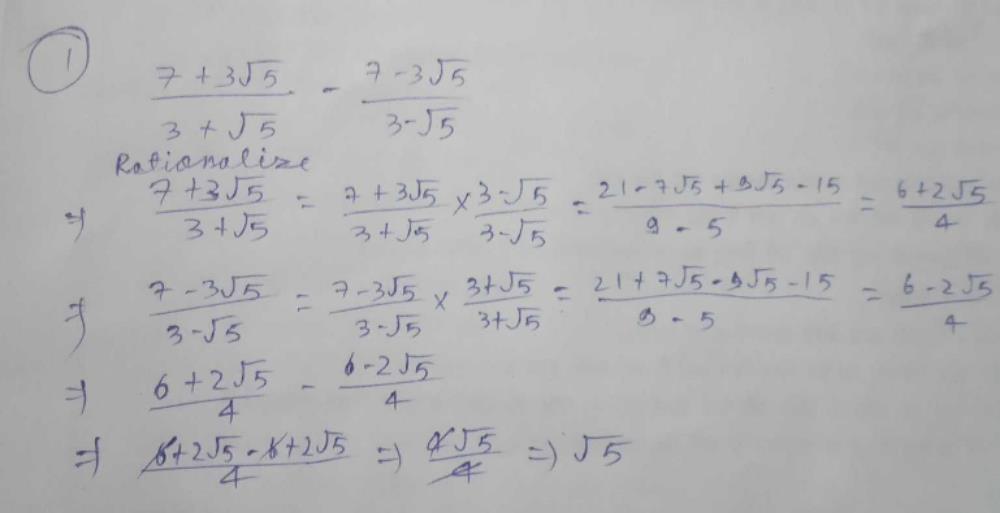 1
(7 + 3√5)/(3 + √5) - (7 - 3√5)/(3 - √5)
Rationalize
⇒ (7 + 3√5)/(3 + √5) = (7 + 3√5)/(3 + √5) × (3 - √5)/(3 - √5) = (21 - 7√5 + 9√5 - 15)/(9 - 5) = (6 + 2√5)/4
⇒ (7 - 3√5)/(3 - √5) = (7 - 3√5)/(3 - √5) × (3 + √5)/(3 + √5) = (21 + 7√5 - 9√5 - 15)/(9 - 5) = (6 - 2√5)/4
⇒ (6 + 2√5)/4 - (6 - 2√5)/4
⇒ (6 + 2√5 - 6 + 2√5)/4 ⇒ 4√5/4 ⇒ √5